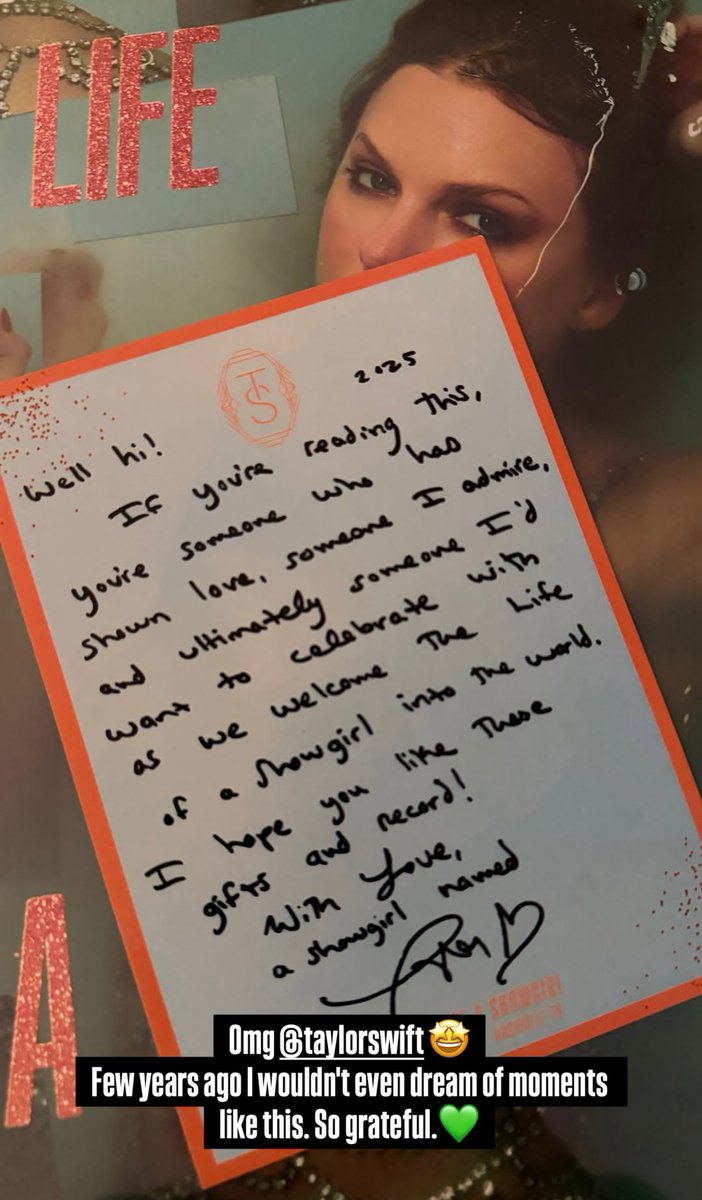 LIFE
TS
2025
Well hi!
If you're reading this,
you're someone who has
shown love, someone I admire,
and ultimately someone I'd
want to celebrate with
as we welcome The Life
of a Showgirl into the world.
I hope you like these
gifts and record!
With Love,
a showgirl named
Taylor
A
A SHOWGIRL
Omg @taylorswift 🤩
Few years ago I wouldn't even dream of moments
like this. So grateful.💚